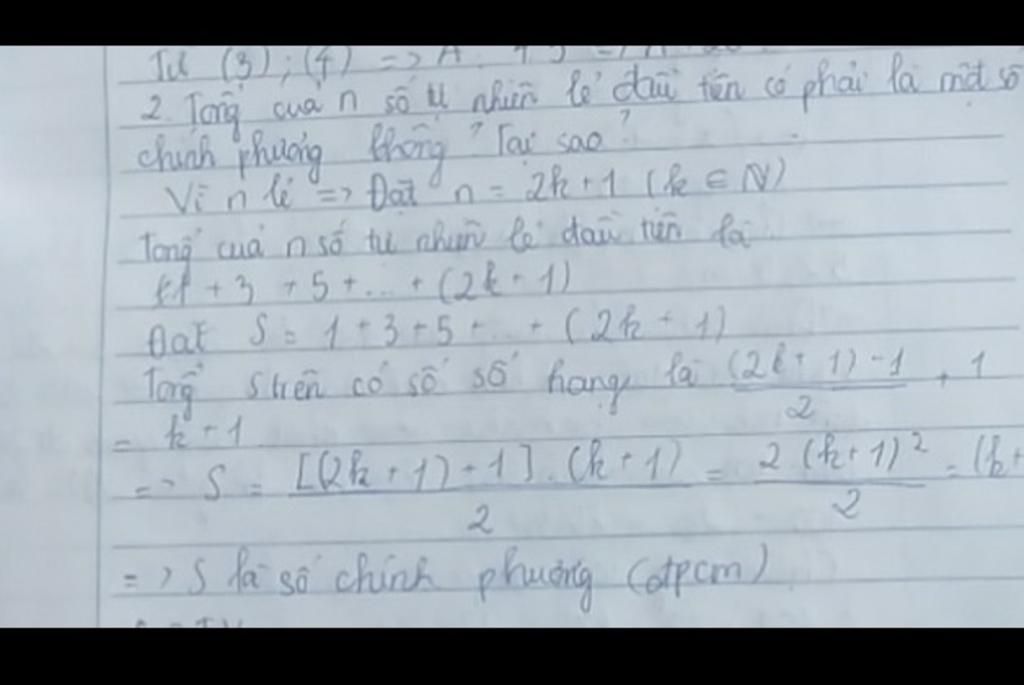 Từ (3); (4) => A
2. Tổng của n số tự nhiên lẻ đầu tiên có phải là một số
chính phương không? Tại sao?
Vì n lẻ => Đặt n = 2k+1 (k ∈ N)
Tổng của n số tự nhiên lẻ đầu tiên là
1 + 3 + 5 + ... + (2k + 1)
Đặt S = 1 + 3 + 5 + ... + (2k + 1)
Tổng S trên có số số hạng là \frac{(2k + 1) - 1}{2} + 1
= k + 1
=> S = \frac{[(2k + 1) + 1] . (k + 1)}{2} = \frac{2 (k + 1)^2}{2} = (k+
=> S là số chính phương (đpcm)